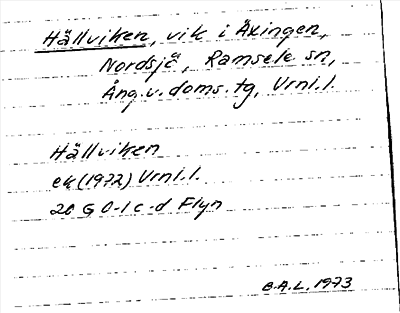 Hällviken, vik i Äxingen,
Nordsjö, Ramsele sn,
Ång.v.doms.tg, Vrnl.l.
Hällviken
ek (1972) Vrnl.l.
20 G 0-1 c-d Flyn
B.A.L. 1973